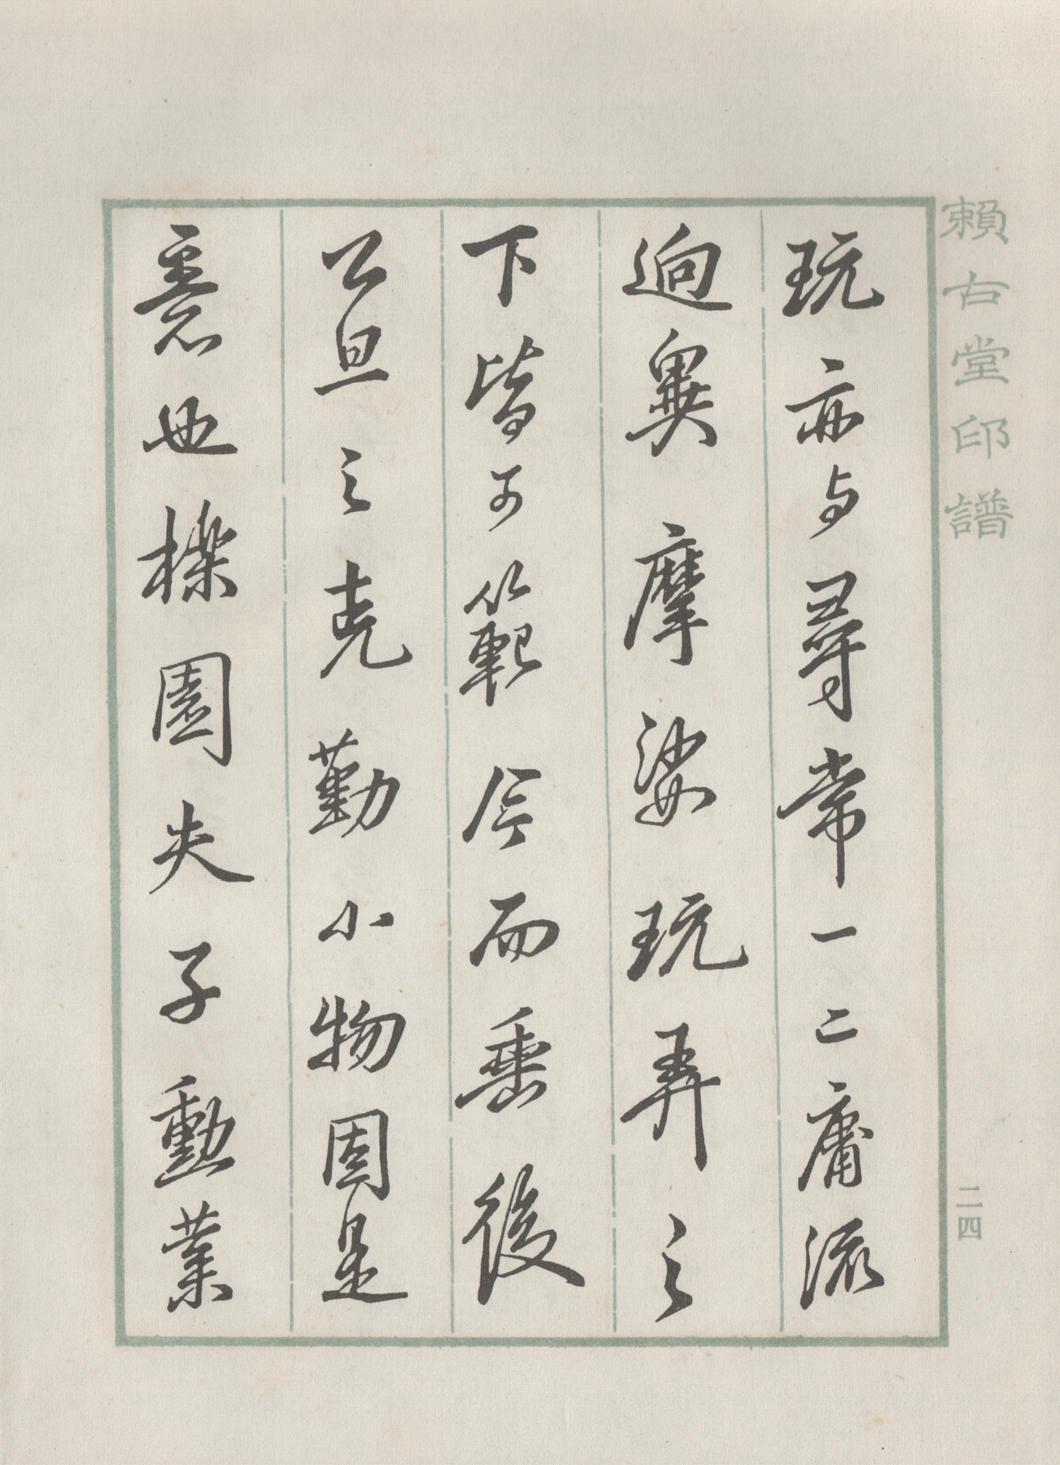 賴古堂印譜
二四
玩亦与尋常一二庸流
逈異摩娑玩弄之
下皆可範今而垂後
公旦之克勤小物固是
意也櫟園夫子勳業